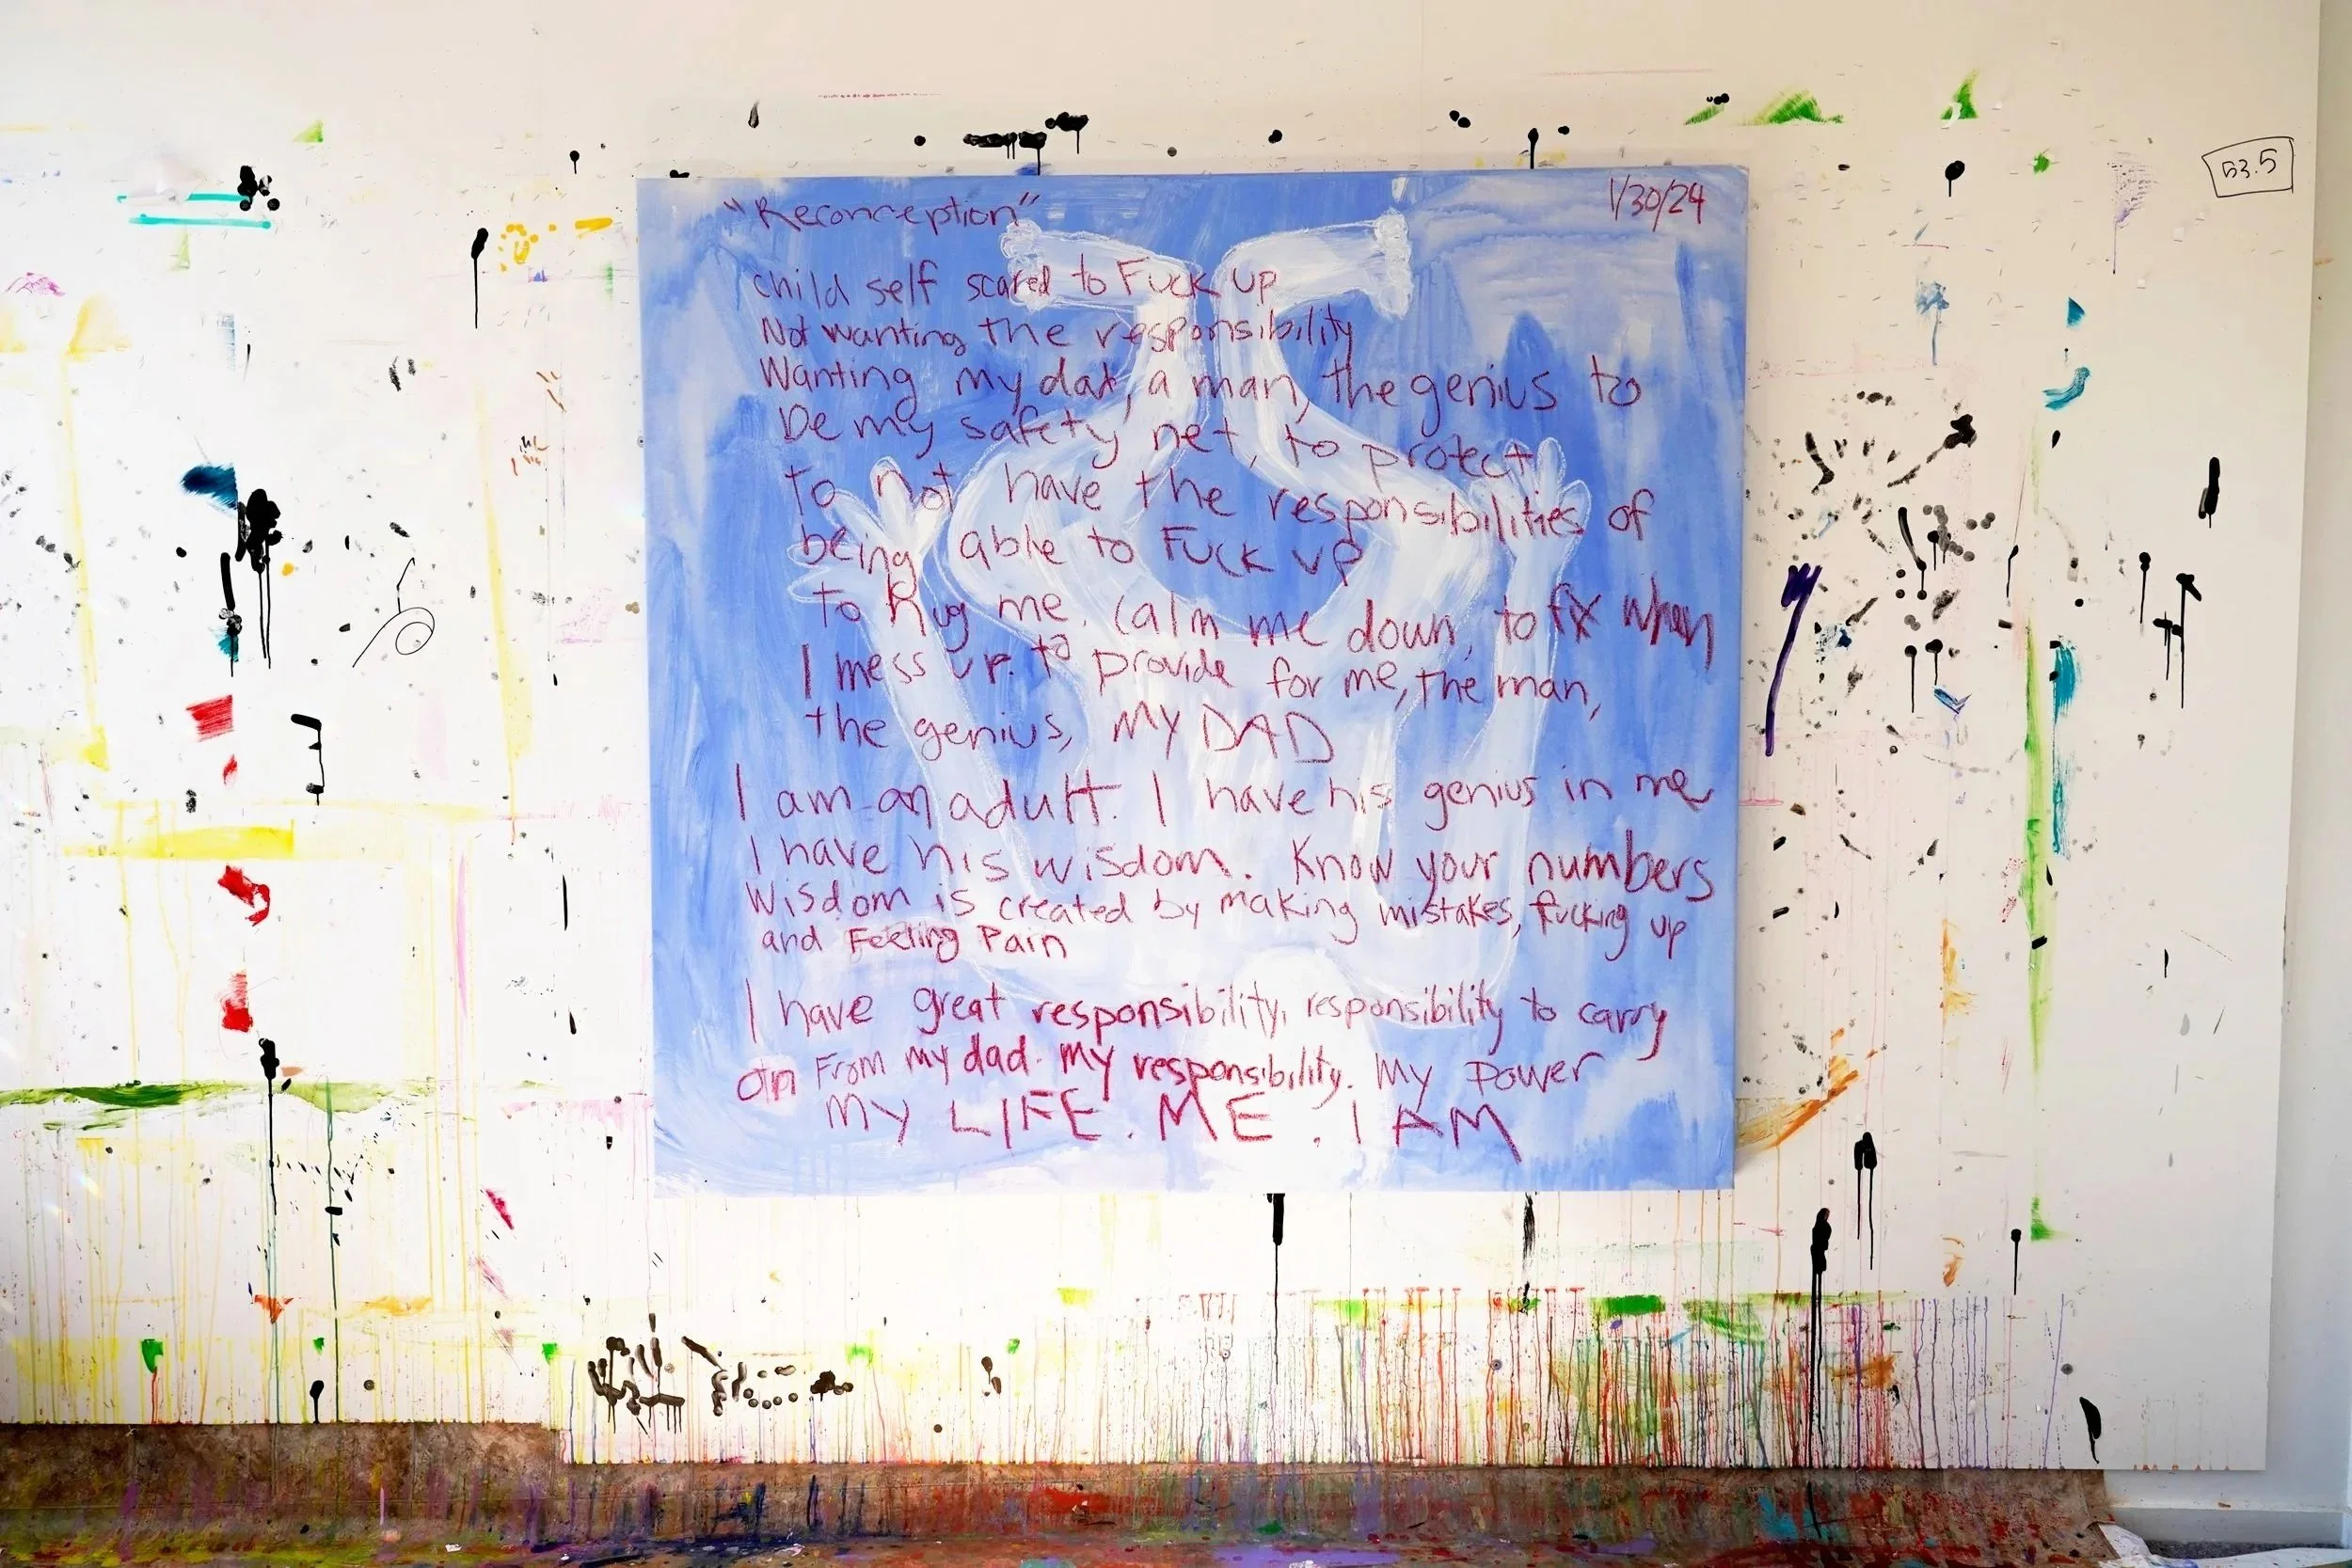 "Reconception"
1/30/24
53.5
child self scared to Fuck up
Not wanting the responsibility
Wanting my dad, a man, the genius to
be my safety net, to protect
to not have the responsibilities of
being able to Fuck up
to hug me. calm me down, to fix when
I mess up. to provide for me, the man,
the genius, MY DAD
I am an adult. I have his genius in me
I have his wisdom. Know your numbers
Wisdom is created by making mistakes, fucking up
and Feeling Pain
I have great responsibility, responsibility to carry
on From my dad. my responsibility. My Power
MY LIFE. ME. I AM